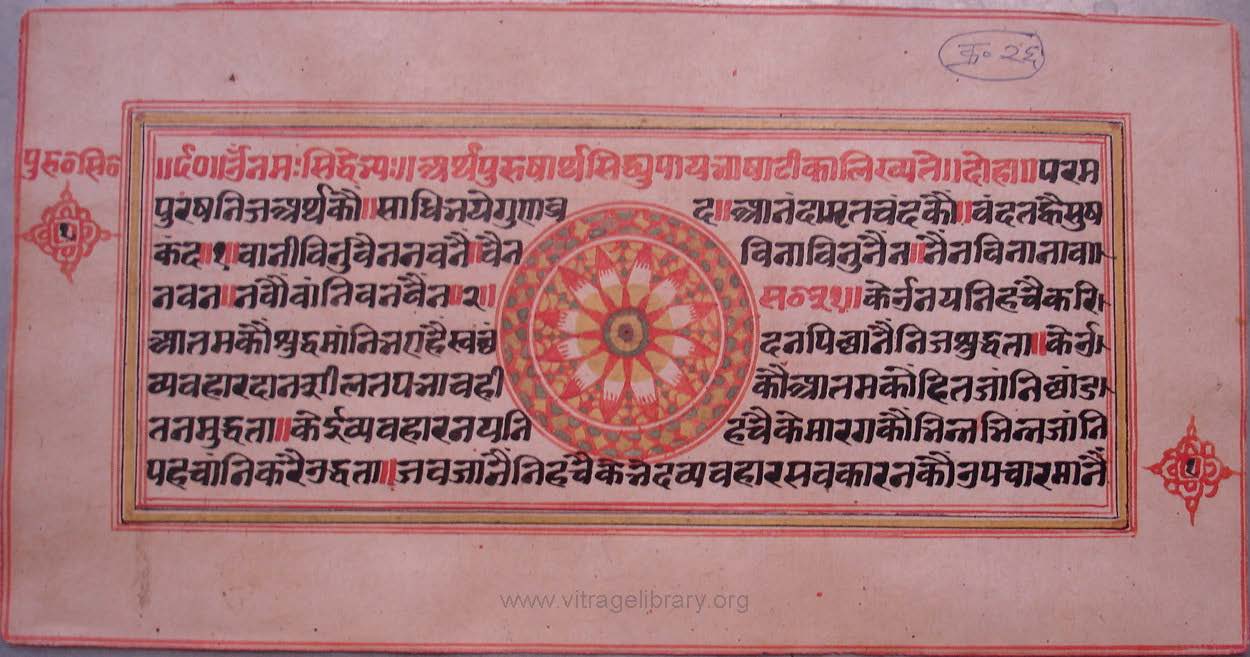 क्र० २६
पुरु०सि०
॥र्द०॥ॐनमःसिद्धेभ्यः॥अर्थपुरुषार्थसिद्ध्युपायभाषाटीकालिख्यते॥दोहा॥परम
पुरंषनिजअर्थकौं॥साधिभयेगुणवृ द॥आनंदामृतचंदकौं॥वंदतह्वैसुष
कंद॥१॥वानीविनुवैननवनै॥वैन विनाविनुनैन॥नैनविनानावा
नवन॥नवौंवांनिवनवैन॥२॥ स०३१॥केईनयनिहचैकरि
आतमकौंशुद्धमांनिभएहैंस्वछं दनपिछानैंनिजशुद्धता॥केई
व्यवहारदानशीलतपभावही कौंआतमकौहितजांनिछांडा
तनमुद्धता॥केईव्यवहारनयनि हचैकेमारगकौंभिन्नभिन्नजांनि
पहचांनिकरैउद्धता॥जवजांनैंनिहचैकेभेदव्यवहारसवकारनकौंउपचारमानैं
१
१
www.vitragelibrary.org